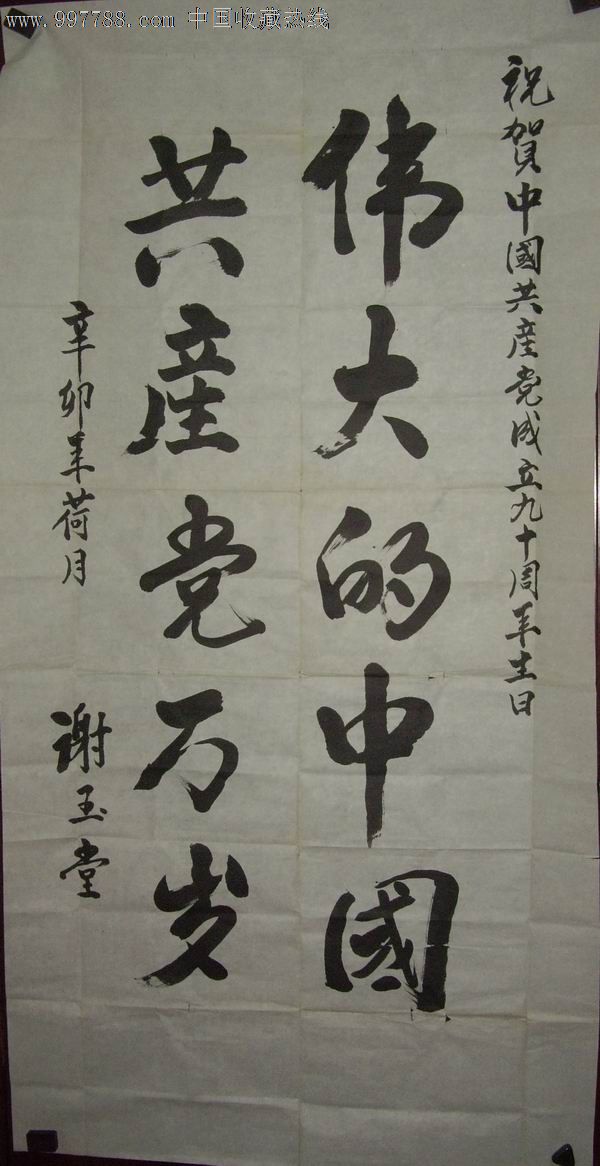 www.997788.com 中国收藏热线
祝贺中國共産党成立九十周年生日
伟大的中國
共産党万岁
辛卯年荷月
谢玉堂